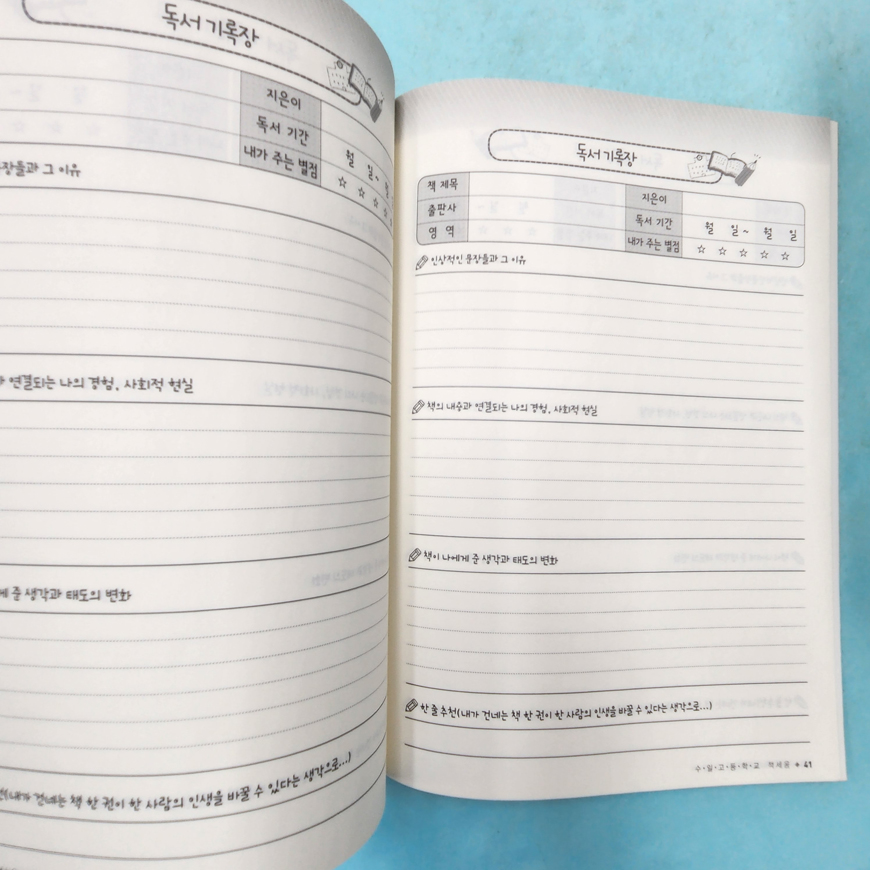 독서 기록장
지은이
독서 기간
월 일~
내가 주는 별점
☆ ☆ ☆ ☆
그 이유
연결되는 나의 경험, 사회적 현실
준 생각과 태도의 변화
책 한 권이 한 사람의 인생을 바꿀 수 있다는 생각으로...)
독서 기록장
책 제목
지은이
출판사
독서 기간
월 일~ 월 일
영 역
내가 주는 별점
☆ ☆ ☆ ☆ ☆
인상적인 문장들과 그 이유
책의 내용과 연결되는 나의 경험, 사회적 현실
책이 나에게 준 생각과 태도의 변화
한 줄 추천(내가 건네는 책 한 권이 한 사람의 인생을 바꿀 수 있다는 생각으로...)
수•일•고•등•학•교 41